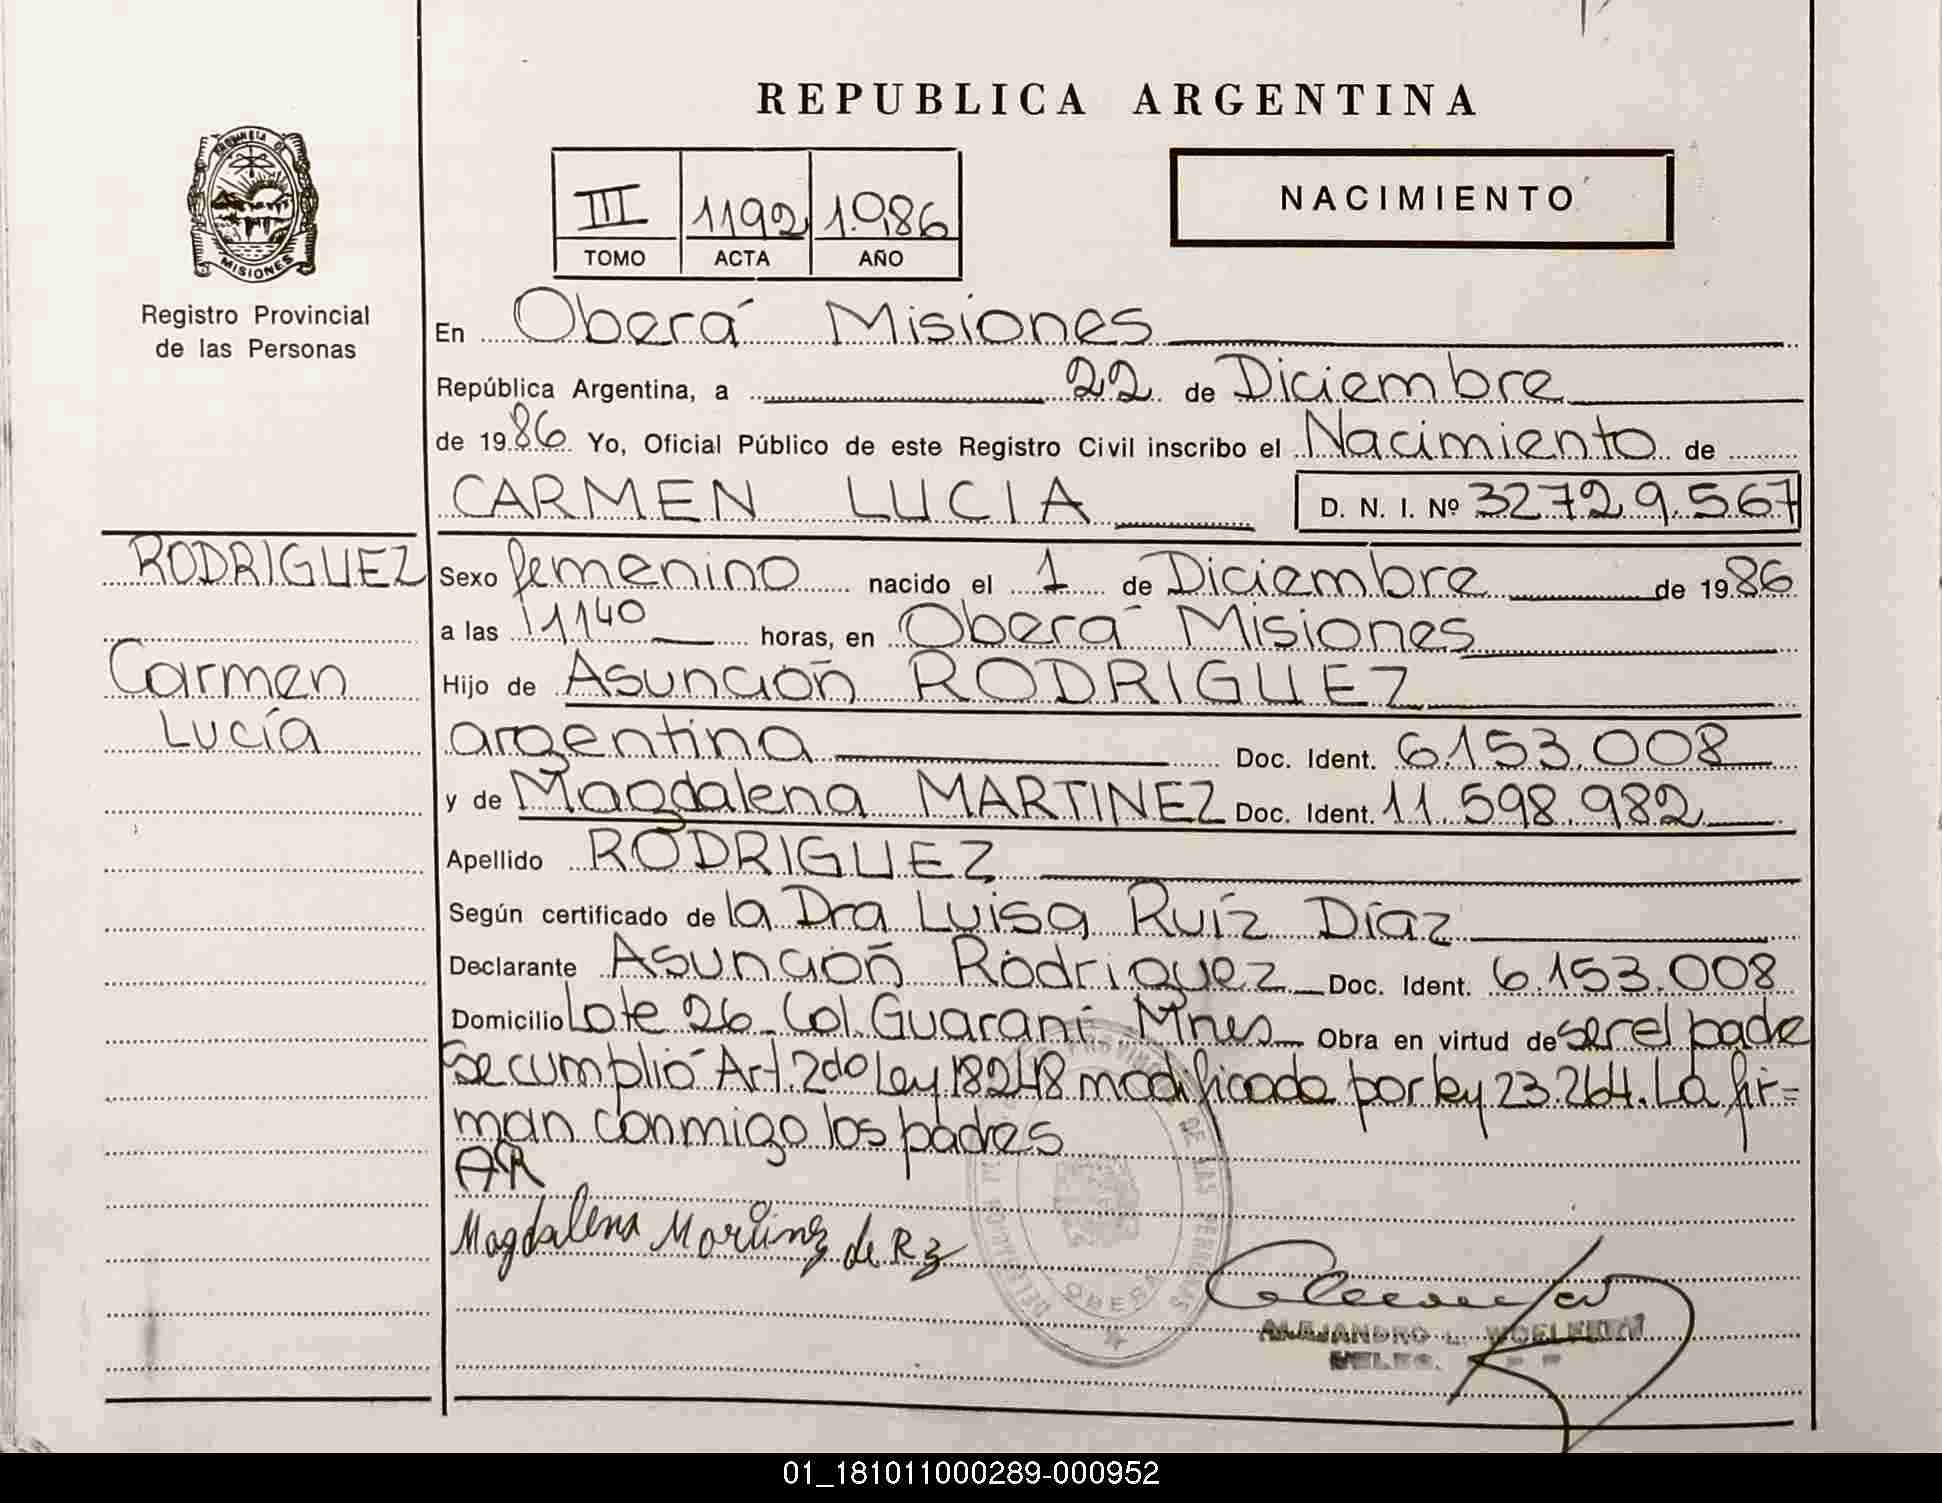 REPUBLICA ARGENTINA
PROVINCIA DE
MISIONES
Registro Provincial
de las Personas
III 1192 1.986
TOMO ACTA AÑO
NACIMIENTO
En Oberá Misiones
República Argentina, a 22 de Diciembre
de 1986 Yo, Oficial Público de este Registro Civil inscribo el Nacimiento de
CARMEN LUCIA D. N. I. Nº 32729.567
RODRIGUEZ
Carmen
Lucía
Sexo femenino nacido el 1 de Diciembre de 1986
a las 1140 horas, en Oberá Misiones
Hijo de Asunción RODRIGUEZ
argentina Doc. Ident. 6.153.008
y de Magdalena MARTINEZ Doc. Ident. 11.598.982
Apellido RODRIGUEZ
Según certificado de la Dra Luisa Ruíz Díaz
Declarante Asunción Rodriguez Doc. Ident. 6.153.008
Domicilio Lote 26 Col. Guaraní Mnes Obra en virtud de ser el padre
Se cumplió Art. 2do Ley 18248 modificada por ley 23.264. La fir=
man conmigo los padres
AR
Magdalena Martinez de Rz
OBERA
ALEJANDRO L.
01_181011000289-000952